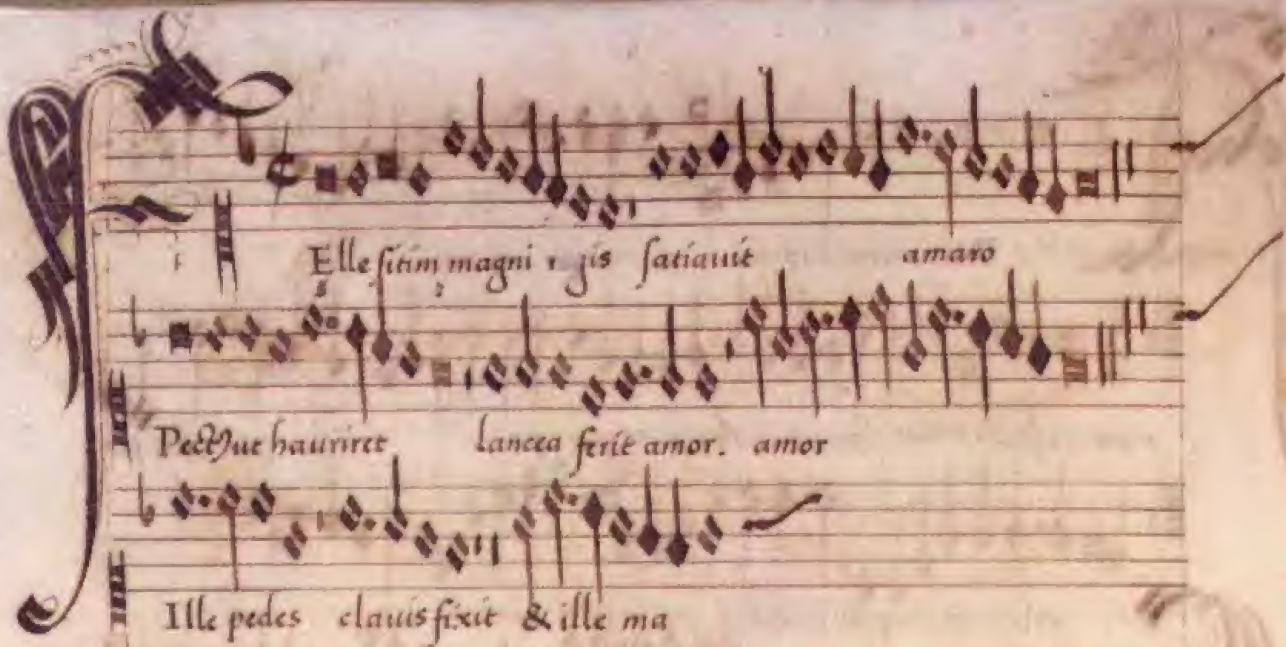 FElle ſitim magni regis ſatiauit amaro
Pectꝰue hauriret lancea ferit amor. amor
Ille pedes clauis fixit & ille ma